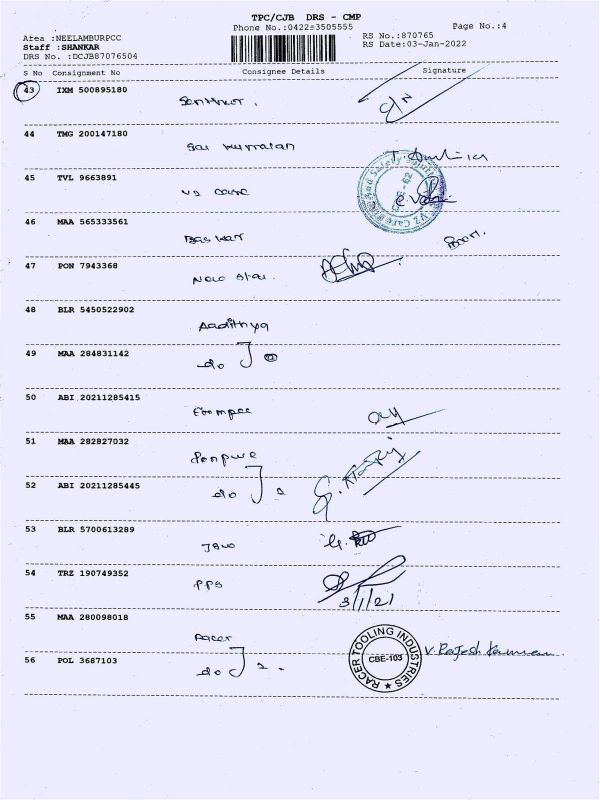 TPC/CJB DRS - CMP
Phone No.:0422=3505555 Page No.:4
Area :NEELAMBURPCC RS No.:870765
Staff :SHANKAR RS Date:03-Jan-2022
DRS No. :DCJB87076504
S No Consignment No Consignee Details Signature
43 IXM 500895180
44 TMG 200147180
Sai Kumaran
45 TVL 9663891
V2 Care
46 MAA 565333561
Baskar
47 PON 7943368
New Star
48 BLR 5450522902
Aadithya
49 MAA 284831142
do
50 ABI 20211285415
51 MAA 282827032
52 ABI 20211285445
do 2
53 BLR 5700613289
54 TRZ 190749352
PPS
3/1/21
55 MAA 280098018
Racer
56 POL 3687103
do 2.
RACER TOOLING INDUSTRIES
CBE-103
V. Rajesh Kumaran